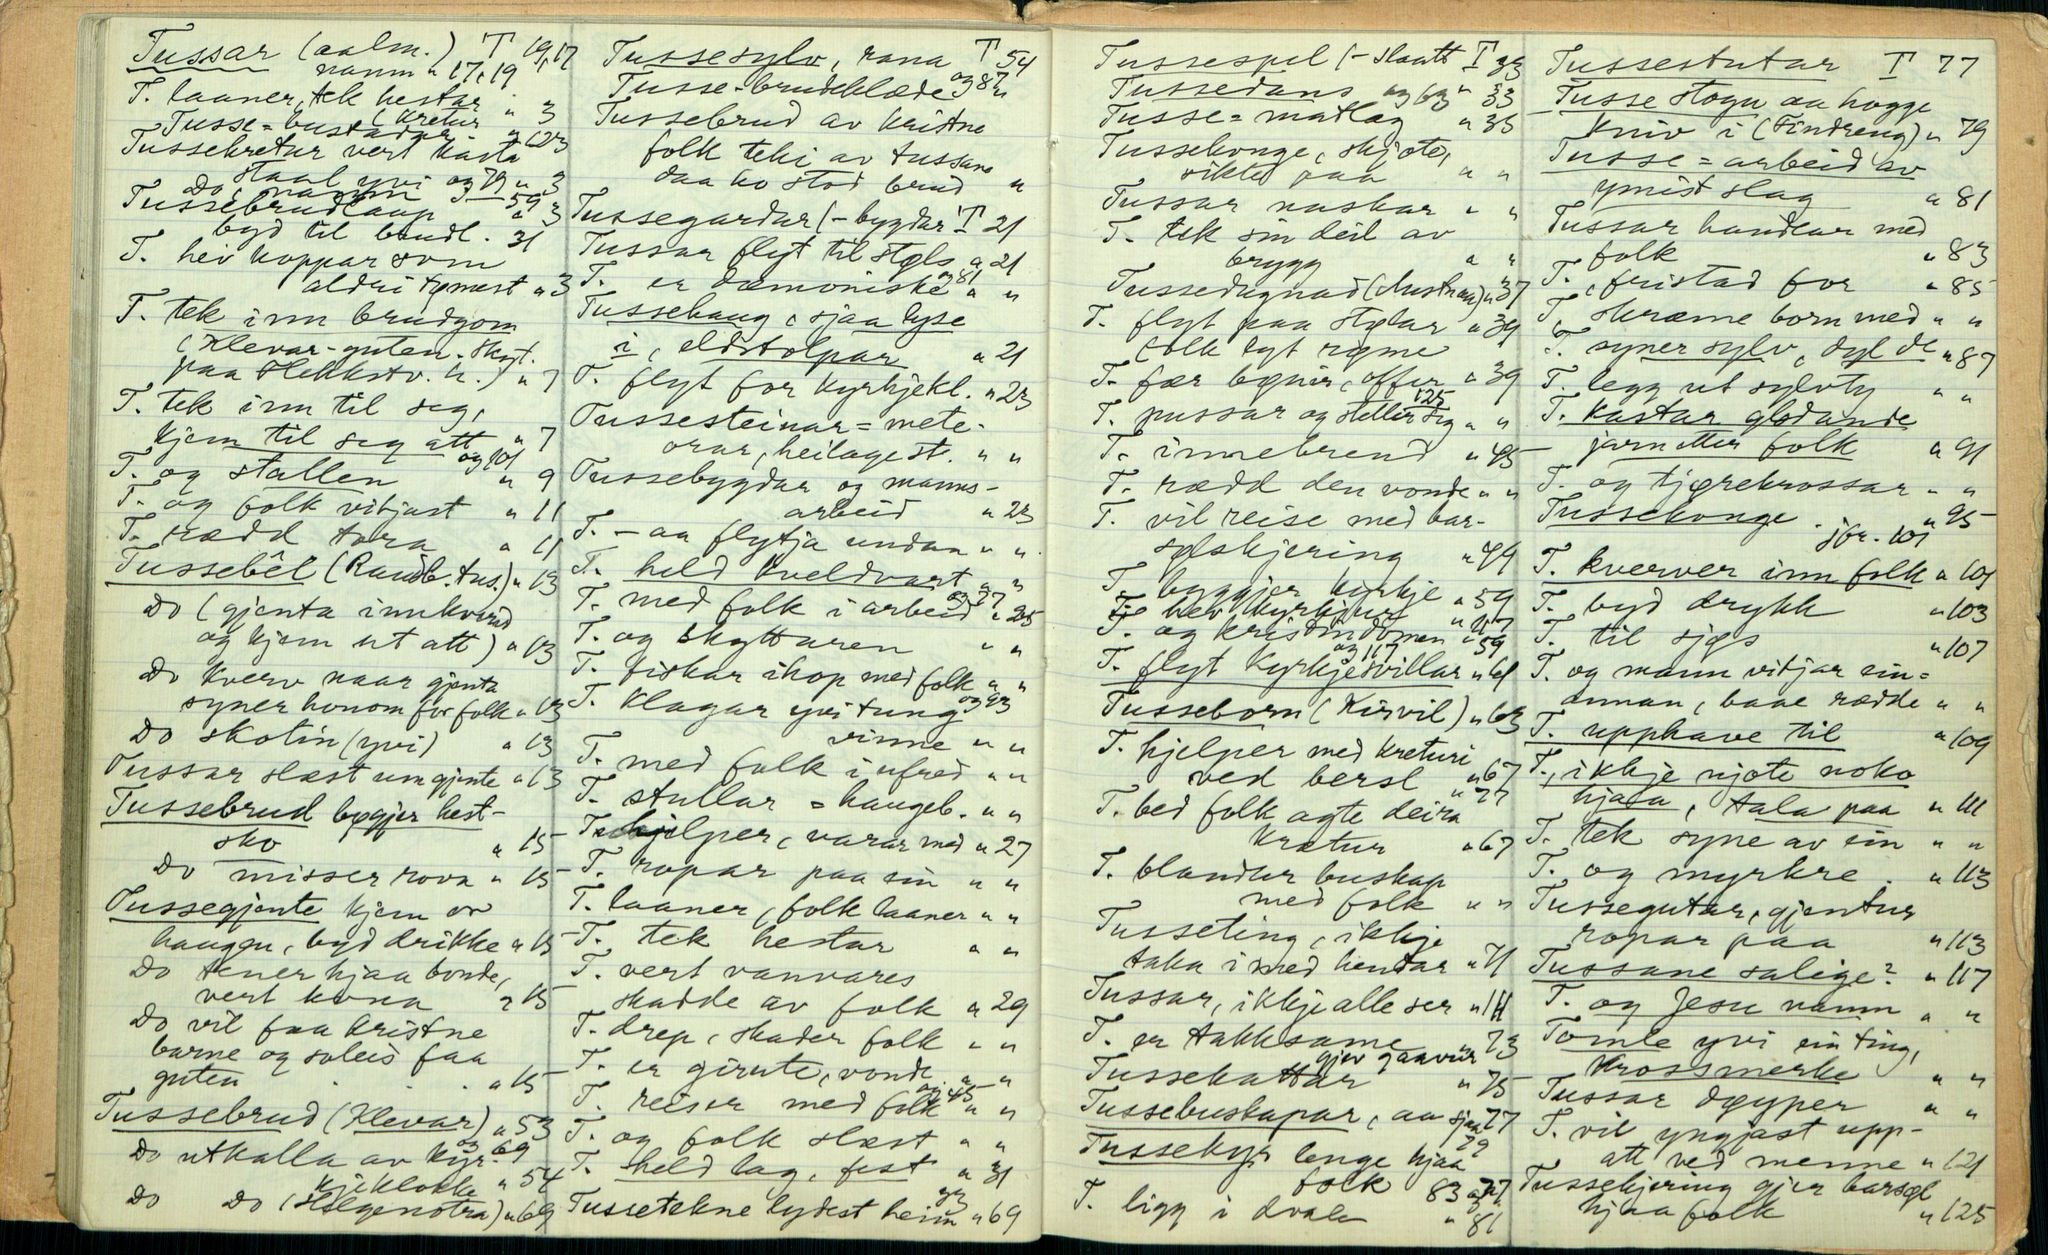 Tussar (aalm.) T 19, 17
namn " 17, 19
T. laaner, tek hestar
(kretur " 3
Tusse=bustadar - " 123
Tussekretur vert kasta
staal yvi og 79 " 3
Do namn 3 - 59
Tussebrudlaup " 3
byd til brudl. 31
T. hev koppar som
aldri tømest " 3
T. tek inn brudgom
(Klevar-guten.
paa Slekkstv. " 7
T. tek inn til seg,
kjem til seg att " 7
og 101
T. og stallen " 9
T. og folk vitjast " 11
T. rædd tora " 11
Tussebêl (Raudb. tus.) " 13
Do (gjenta innkverd
og kjem ut att) " 13
Do kverv naar gjenta
syner honom for folk " 13
Do skotin (yvi) " 13
Tussar slæst um gjente " 13
Tussebrud bøgjer hest-
sko " 15
Do misser rova " 15
Tussegjente kjem or
haugen, byd drikke " 15
Do tener hjaa bonde,
vert kona " 15
Do vil faa kristne
barne og soleis faa
guten . . . " 15
Tussebrud (Klevar) " 53
og 69
Do utkalla av kyr-
kjeklokke " 54
Do Do (Helgenotra) " 69
Tussesylv, rana T 54
og 87
Tusse-brudeklæde "
Tussebrud av kristne
folk teki av tussane
daa ho stod brud "
Tussegardar (-bygdar T 21
Tussar flyt til støls " 21
og 81
T. er dæmoniske " "
Tussehaug, sjaa lyse
i, eldstolpar " 21
T. flyt for kyrkjekl. " 23
Tussesteinar = mete-
orar, heilage st. " "
Tussebygdar og manns-
arbeid " 23
T. - aa flytja undan " "
T. held kveldvart " "
og 27
T. med folk i arbeid " 25
T. og skyttaren " "
T. fiskar ihop med folk " "
og 93
T. klagar yvi tung
vinne " "
T. med folk i ufred " "
T. stullar = haugeb. " "
T. hjelper, varar med " 27
T. ropar paa ein " "
T. laaner, folk laaner " "
T. tek hestar " "
T. vert vanvares
skadde av folk " 29
T. drep, skader folk " "
T. er girute, vonde " "
og 45
T. reiser med folk " "
T. og folk slæst " "
T. held lag, fest " 31
93
Tussetekne lydest heim " 69
Tussespel (- slaatt T 33
Tussedans og 63 " 33
Tusse=matlag " 35
Tussekonge, skjote,
sikte paa " "
Tussar naskar " "
T. tek sin deil av
brygg " "
Tussedugnad (Austmm) " 37
T. flyt paa stølar " 39
(folk lyt røme
T. fær bønir, offer " 39
125
T. pussar og steller seg " "
T. innebrend " 45
T. rædd den vonde " "
T. vil reise med bar-
sølskjering " 49
T. byggjer kyrkje " 59
T. hev kyrkjur " 117
T. og kristindomen " 59
og 117
T. flyt kyrkjesvillar " 61
Tusseborn (Kirvil) " 63
T. hjelper med kreturi
ved bersl " 67
" 77
T. bed folk agte deira
kretur " 67
T. blandar buskap
med folk " "
Tusseting, ikkje
taka i med hendar " 71
Tussar, ikkje alle ser " 111
T. er takksame " 73
gjev gaavur
Tussekattar " 75
Tussebuskapar, aa sjaa 77
79
Tussekyr lenge hjaa
folk 83 og 77
T. ligg i dvale " 81
Tussestutar T 77
Tusse stogu aa hogge
kniv i (Findreng) " 79
Tusse=arbeid av
ymist slag " 81
Tussar handlar med
folk " 83
T. , fristad for " 85
T. skræme born med " "
T. syner sylv, dyl de " 87
T. legg ut sylvty " "
T. kastar glodande
jarn etter folk " 91
T. og tjørekrossar " "
Tussekonge . " 95
jfr. 101
T. kverver inn folk " 101
T. byd drykk " 103
T. til sjøs " 107
T. og mann vitjar ein=
annan, baae rædde " "
T. upphave til " 109
T., ikkje njote noko
hjaa, tala paa " 111
T. tek syne av ein " "
T. og myrkre . " 113
Tussegutar, gjentur
ropar paa " 113
Tussane salige? " 117
T. og Jesu namn " "
Tomle yvi ein ting,
krossmerke " "
Tussar døyper " "
T. vil yngjast upp-
att ved menne " 121
Tussekjering gjer barsøl
hjaa folk " 125